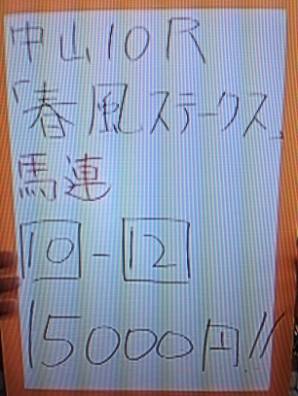 中山10R
「春風ステークス」
馬連
10-12
15000円!!